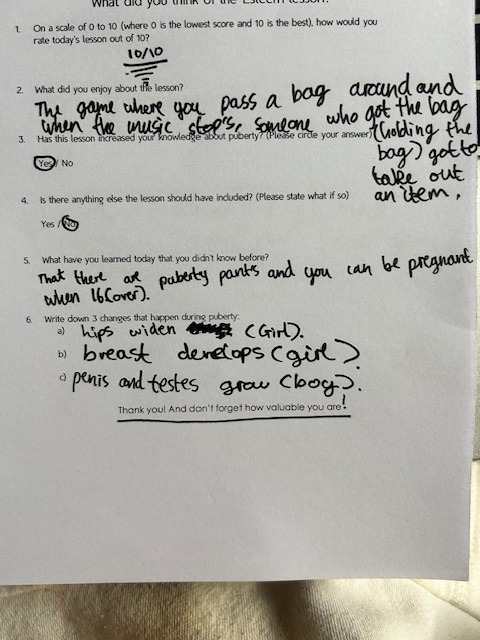 What did you think of the Esteem lesson?
1. On a scale of 0 to 10 (where 0 is the lowest score and 10 is the best), how would you
rate today's lesson out of 10?
10/10
2. What did you enjoy about the lesson?
The game where you pass a bag around and
when the music stop's, someone who got the bag
3. Has this lesson increased your knowledge about puberty? (Please circle your answer)
(holding the
bag) got to
take out
an item.
Yes / No
4. Is there anything else the lesson should have included? (Please state what if so)
Yes / No
5. What have you learned today that you didn't know before?
That there are puberty pants and you can be pregnant
when 16(over).
6. Write down 3 changes that happen during puberty:
a) hips widen (Girl).
b) breast develops (girl).
c) penis and testes grow (boy).
Thank you! And don't forget how valuable you are!